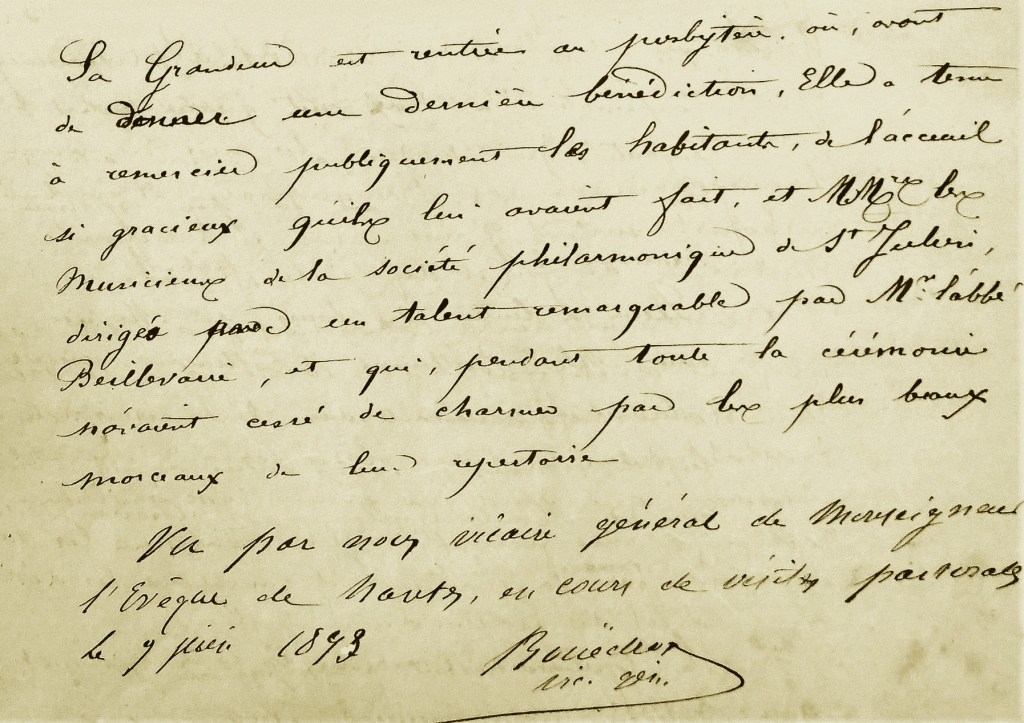 Sa Grandeur est rentrée au presbytère. où, avant
de donner une dernière bénédiction, Elle a tenu
à remercier publiquement les habitants, de l'accueil
si gracieux qu'ils lui avaient fait, et MM.rs les
Musiciens de la société philarmonique de St Julien,
dirigés avec un talent remarquable par Mr. l'abbé
Beillevaire, et qui, pendant toute la cérémonie
n'avaient cessé de charmer par les plus beaux
morceaux de leur repertoire
Vu par nous vicaire général de Monseigneur
l'Evêque de Nantes, en cours de visites pastorales
le 9 juin 1893
vic. gén.